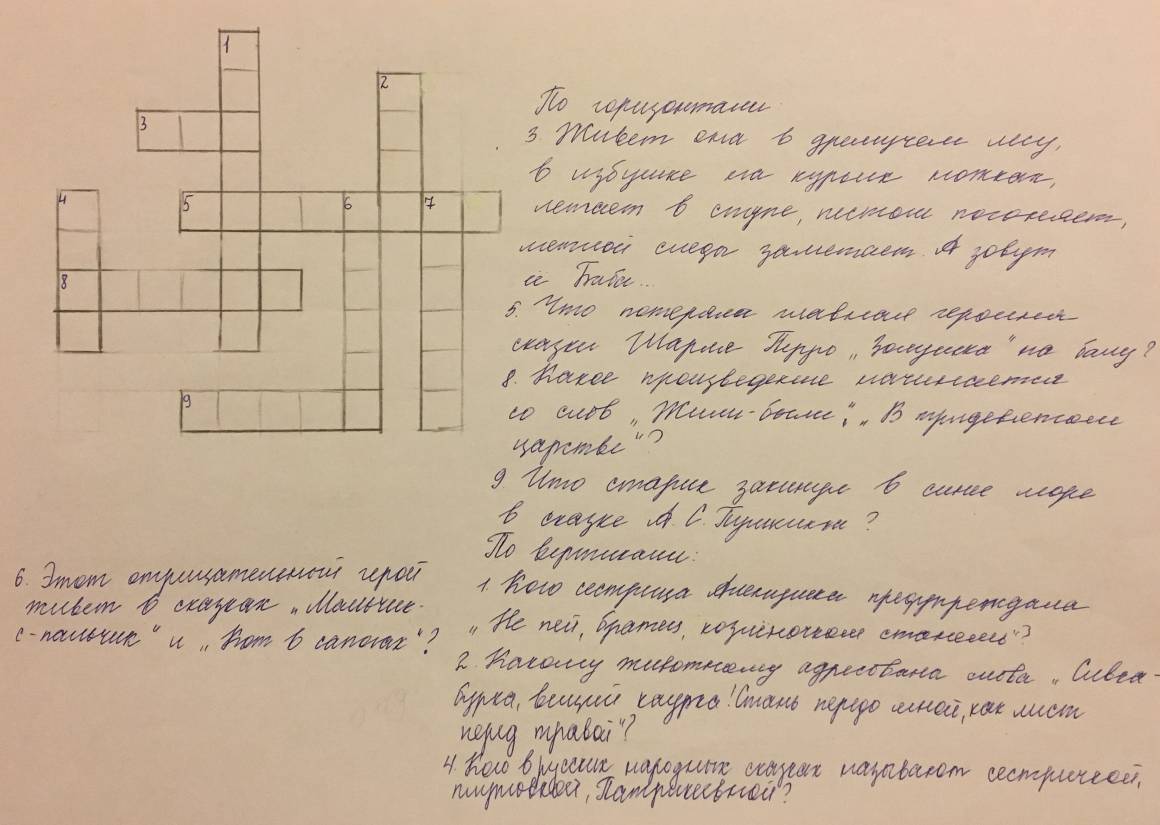 1
2
3
4
5
6
7
8
9
По горизонтали
3. Живет она в дремучем лесу,
в избушке на курьих ножках,
летает в ступе, пестом погоняет,
метлой следы заметает. А зовут
её Баба...
5. Что потеряла главная героиня
сказки Шарля Перро „Золушка" на балу?
8. Какое произведение начинается
со слов „Жили-были", „В тридевятом
царстве"?
9. Что старик закинул в синее море
в сказке А. С. Пушкина?
По вертикали:
1. Кого сестрица Аленушка предупреждала
„Не пей, братец, козлёночком станешь"?
2. Какому животному адресована слова „Сивка-
бурка, вещий каурка! Стань передо мной, как лист
перед травой"?
4. Кого в русских народных сказках называют сестричкой,
плутовкой, Патрикеевной?
6. Этот отрицательный герой
живет в сказках „Мальчик-
с-пальчик" и „Кот в сапогах"?